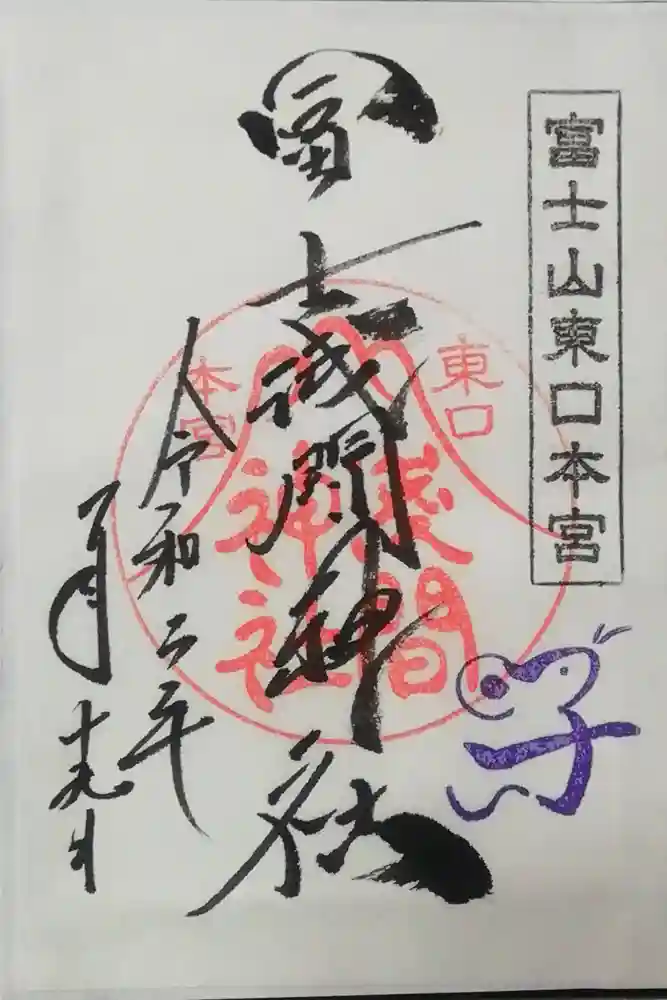 富士山東口本宮
冨士浅間神社
東口
本宮
淺間
神社
令和二年
一月十九日
子